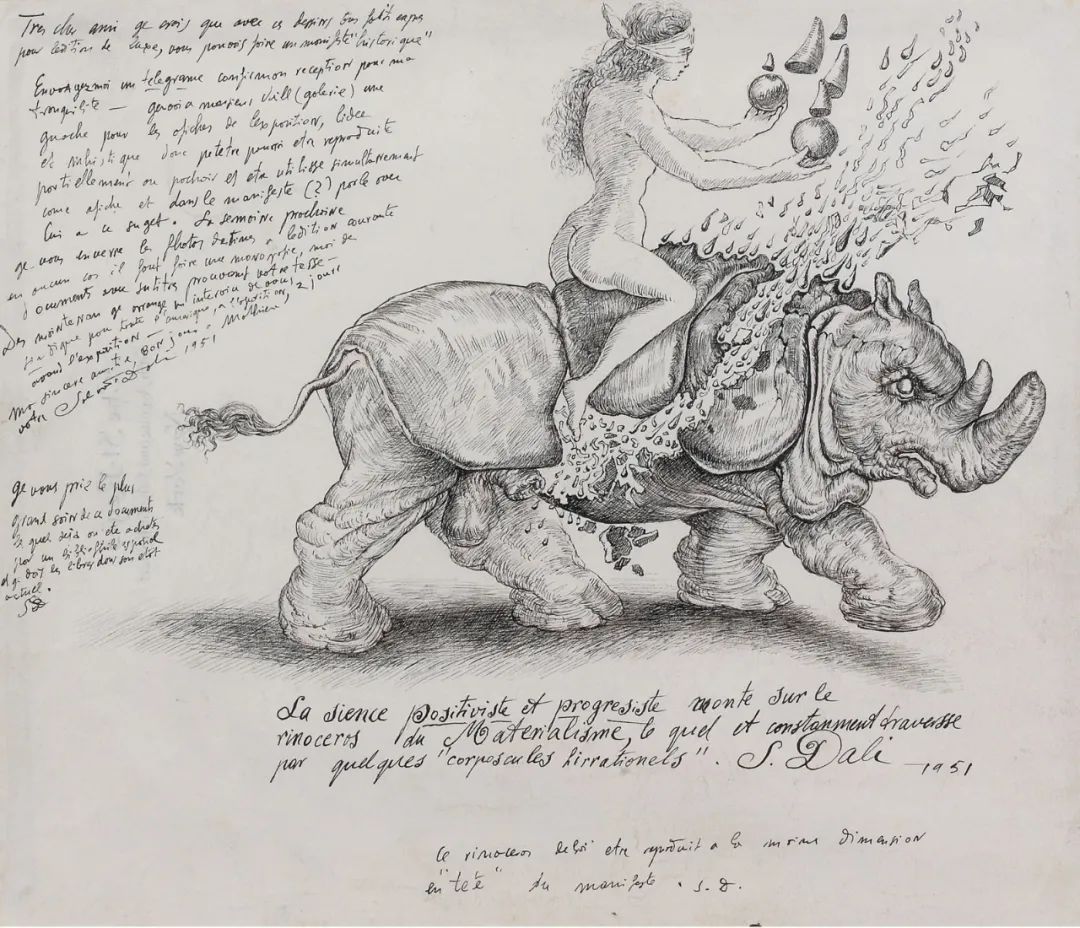 Tres cher ami ge crois que avec ces dessins tres faits expres
pour ledition de luxe, vous pouvois foire un monifeste "historique"
Envoyezmoi un telegrame confirmon reception pour ma
tronquilité — gevois a masieur Vill (galerie) une
guache pour les afiches de lexposition, lidee
et donc putetre pourra etre reproduite
portiellement ou pochoir et etre utilisse simultanement
come afiche et dans le manifeste (2) parle avec
lui a ce suget. La semoine prochoine
ge vous enverre les photos destines a ledition courante
en oucun cas il fout foire une monogrofie, moi des
documents avec sutitres prouvant votre tesse—
Des maintenan ge orrange un interviu de vous
pour toute l'amerique 2 jours
avant l'exposition
mo sincere amitie, bon jour a Mathieu
votre Salvador Dali 1951
ge vous prie le plus
grand soin de ce documents
le quel deja on ete achetes
por un bibliophile espanol
et ge dois les librer dans son etat
actuel.
SD
La sience positiviste et progresiste monte sur le
rinoceros du Materialisme, le quel et constanment traversse
par quelques "corpuscules hirrationels". S. Dali — 1951
Ce rinoceros doi etre reproduit a la meime dimension
en "tete" du manifeste. S. D.